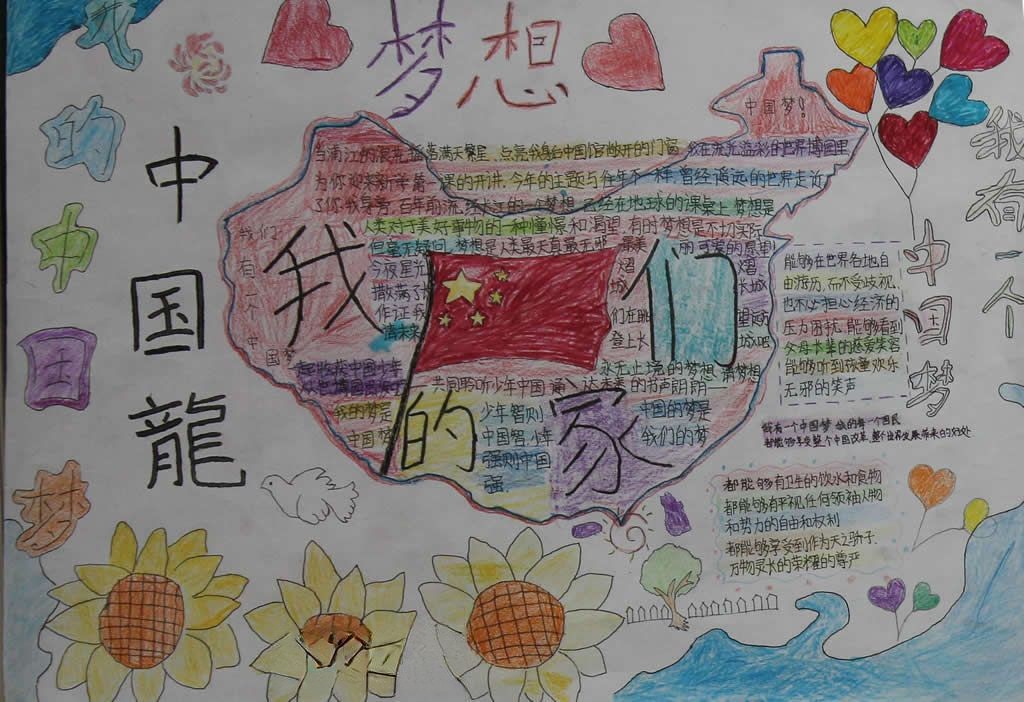 梦想
我的中国梦
中国龍
中国梦！
我有一个
中国梦
我们的家
我们有一个中国梦
当浦江的浪花 满天繁星 点亮我身台中国馆敞开的门窗 我在流光溢彩的世界博园里
为你迎来新学期第一课的开讲.今年的主题与往年不一样.曾经遥远的世界走近
了你.我身旁.百年前 的一个梦想 已经在地球的课桌上 梦想是
人类对于美好事物的一种憧憬和渴望 有时梦想是不切实际
但毫无疑问.梦想是人类最天真最无邪 最美丽可爱的愿望
今夜星光
撒满了
作证我
满未来
们在眺
们登上长
城吧
永无止境的梦想
共同聆听少年中国 的书声朗朗
我的梦是
中国梦
少年智则
中国智.少年
强则中国
强.
中国的梦是
我们的梦
能够在世界各地自
由游历.而不受歧视.
也不必担心经济的
压力困扰.能够看到
父母长辈的慈爱笑容
能够听到孩童欢乐
无邪的笑声
我有一个中国梦 的每一个国民
都能够享受整个中国改革.整个世界发展带来的好处
都能够有卫生的饮水和食物
都能够有平视任何领袖人物
和势力的自由和权利
都能够享受到作为天之骄子.
万物灵长的荣耀的尊严